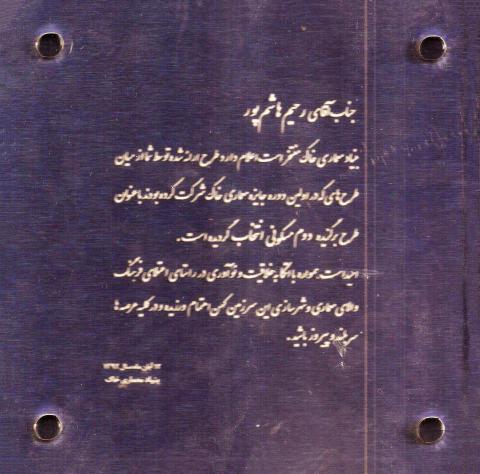 جناب آقای رحیم هاشم پور
بنیاد معماری خاک مفتخر است اعلام دارد طرح ارائه شده توسط شما از میان
طرح هایی که در اولین دوره جایزه معماری خاک شرکت کرده بودند با عنوان
طرح برگزیده دوم مسکونی انتخاب گردیده است.
امید است همواره با اتکا به خلاقیت و نوآوری در راستای اعتلای فرهنگ
والای معماری و شهرسازی این سرزمین کهن اهتمام ورزیده و در کلیه عرصه ها
سربلند و پیروز باشید.
آبان ماه سال
بنیاد معماری خاک